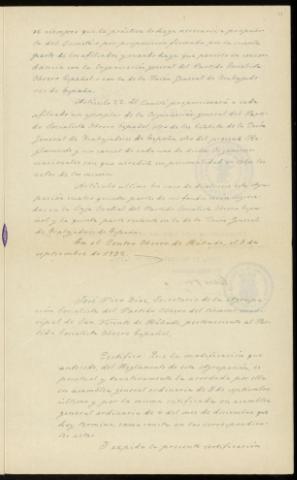 se siempre que la práctica lo haga necesario a propuesta
del Comité o por proposición firmada por la cuarta
parte de los afiliados y cuando haya que ponerlo en concordancia
con la Organización general del Partido Socialista
Obrero Español o con la de la Unión General de Trabajadores
de España.
Artículo 22. El Comité proporcionará a cada
afiliado un ejemplar de la Organización general del Partido
Socialista Obrero Español, otro de los Estatutos de la Unión
General de Trabajadores de España, otro del presente Reglamento
y un carnet de cada uno de dichos Organismos
nacionales con que acredite su personalidad en todos los
actos de los mismos.
Artículo último. En caso de disolverse esta Agrupación
cuatro quintas partes de sus fondos serán
en la Caja Central del Partido Socialista Obrero Español
y la quinta parte restante en la de la Unión General
de Trabajadores de España.
En el Centro Obrero de a 3 de
septiembre de 1932.
José Díaz, Secretario de la Agrupación
Socialista del Partido Obrero del término municipal
de San Vicente de perteneciente al Partido
Socialista Obrero Español,
Certifico: Que la modificación que
antecede, del Reglamento de esta Agrupación, es
puntual y taxativamente la acordada por ella
en asamblea general ordinaria de 3 de septiembre
último y por la misma ratificada en asamblea
general ordinaria de 4 del mes de diciembre que
hoy termina, como consta en las correspondientes
actas.
Y expido la presente certificación